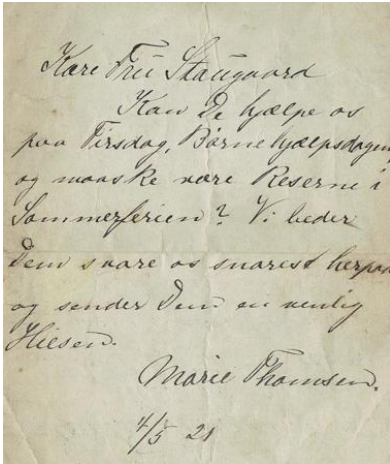 Kære Fru Staugaard
Kan De hjælpe os
paa Tirsdag, Børnehjælpsdagen,
og maaske være Reserve i
Sommerferien? Vi beder
Dem svare os snarest herpaa
og sender Dem en venlig
Hilsen.
Marie Thomsen.
4/5 21